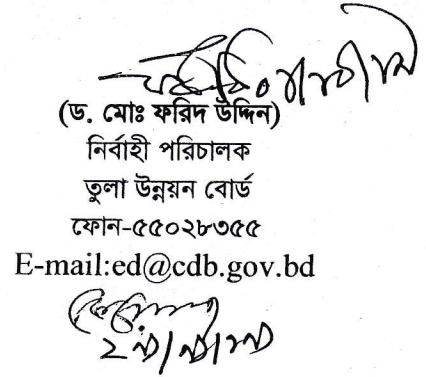 (ড. মোঃ ফরিদ উদ্দিন)
নির্বাহী পরিচালক
তুলা উন্নয়ন বোর্ড
ফোন-৫৫০২৮৩৫৫
E-mail:ed@cdb.gov.bd